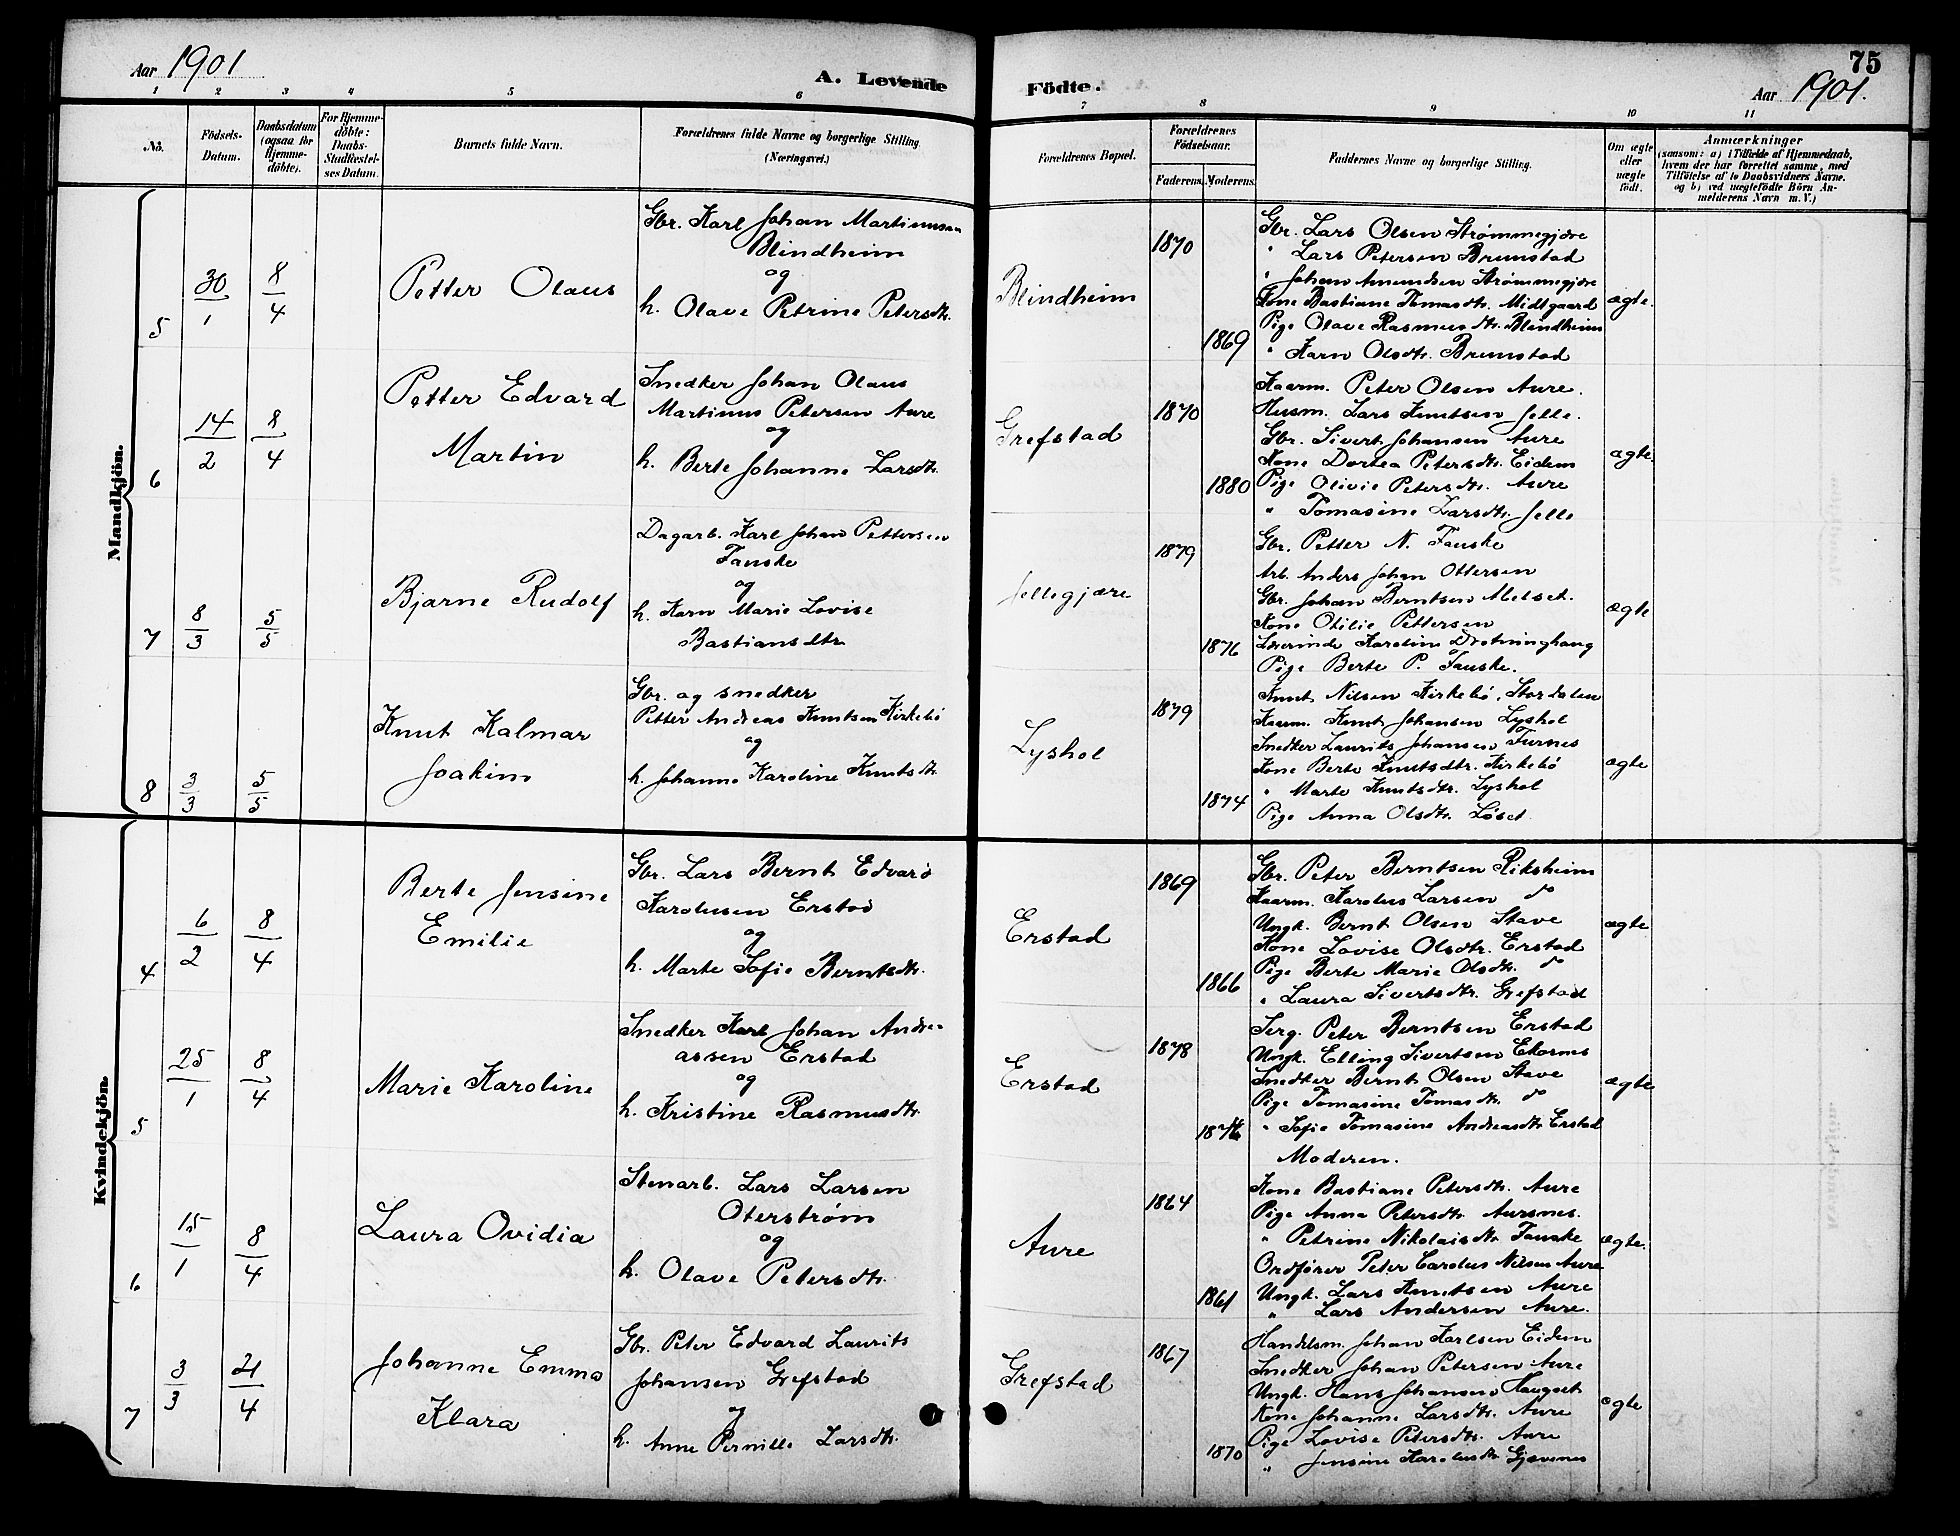 Aar 1901
A. Levende
1 2 3 4 5 6
No. Födsels-Datum. Daabsdatum (ogsaa for Hjemmedöbte). For Hjemmedöbte: Daabs-Stadfæstelses Datum. Barnets fulde Navn. Forældrenes fulde Navne og borgerlige Stilling (Næringsvei.)
Mandkjön.
5 30/1 8/4 Petter Olaus
Gbr. Karl Johan Martinussen
Blindheim
og
h. Olave Petrine Petersdtr.
6 14/2 8/4 Petter Edvard
Martin
Snedker Johan Olaus
Martinus Petersen Aure
og
h. Berte Johanne Larsdtr.
7 8/3 5/5 Bjarne Rudolf
Dagarb. Karl Johan Pettersen
Fauske
og
h. Karn Marie Lovise
Bastiansdtr
8 3/3 5/5 Knut Kalmar
Joakim
Gbr. og snedker
Petter Andreas Knutsen Kirkebö
og
h. Johanne Karoline Knutsdtr.
Kvindekjön.
4 6/2 8/4 Berte Jensine
Emilie
Gbr. Lars Bernt Edvard
Karolusen Erstad
og
h. Marte Sofie Berntsdtr.
5 25/1 8/4 Marie Karoline
Snedker Karl Johan Andre-
assen Erstad
og
h. Kristine Rasmusdtr.
6 15/1 8/4 Laura Ovidia
Stenarb. Lars Larsen
Oterstrøm
og
h. Olave Petersdtr.
7 3/3 21/4 Johanne Emma
Klara
Gbr. Peter Edvard Laurits
Johansen Grefstad
og
h. Anne Pernille Larsdtr.
75
Födte.
Aar 1901.
7 8 9 10 11
Forældrenes Bopæl. Forældrenes Födselsaar. Faderens. Moderens. Faddernes Navne og borgerlige Stilling. Om ægte eller uægte födt. Anmærkninger (saasom: a) i Tilfælde af Hjemmedaab, hvem der har forrettet samme, med Tilföielse af to Daabsvidners Navne. og b) ved uægtefödte Börn Anmelderens Navn m. V.)
Blindheim 1870 1869 ægte.
Gbr. Lars Olsen Strømmegjære
" Lars Petersen Brunstad
" Johan Amundsen Strømmegjære
Kone Bastiane Tomasdtr. Midtgaard
Pige Olave Rasmusdtr. Blindheim
" Karn Olsdtr. Brunstad
Grefstad 1870 1880 ægte.
Kaarm. Peter Olsen Aure.
Husm. Lars Knutsen Jelle.
Gbr. Sivert Johansen Aure
Kone Dortea Petersdtr. Eidem
Pige Olivie Petersdtr. Aure
" Tomasine Larsdtr. Jelle
Jellegjære 1879 1876 ægte
Gbr. Petter N. Fauske
Arb. Anders Johan Ottersen
Gbr. Johan Berntsen Melset.
Kone Otilie Pettersen
Lærerinde Karoline Drotninghaug
Pige Berte P. Fauske.
Lyshol 1879 1874 ægte
Knut Nilsen Kirkebö, Stordalen
Kaarm. Knut Johansen Lyshol
Snedker Laurits Johansen Furnes
Kone Berte Knutsdtr. Kirkebö
" Marte Knutsdtr. Lyshol
Pige Anna Olsdtr. Løset
Erstad 1869 1866 ægte
Gbr. Peter Berntsen Riksheim
Kaarm. Karolus Larsen do
Ungk. Bernt Olsen Stave
Kone Lovise Olsdtr. Erstad
Pige Berte Marie Olsdtr. do
" Laura Sivertsdtr. Grefstad
Erstad 1878 ægte
Serg. Peter Berntsen Erstad
Ungk. Elling Sivertsen Ekornes
Snedker Bernt Olsen Stave
Pige Tomasine Tomasdtr. do
" Sofie Tomasine Andreasdtr. Erstad
Moderen.
Aure 1864 1861 ægte.
Kone Bastiane Petersdtr. Aure
Pige Anna Petersdtr. Aursnes.
" Petrine Nikolaisdtr. Fauske
Ordfører Peter Carolus Nilsen Aure
Ungk. Lars Knutsen Aure
" Lars Andersen Aure.
Grefstad 1867 1870 ægte
Handelsm. Johan Karlsen Eidem
Snedker Johan Petersen Aure
Ungk. Hans Johansen Haugset
Kone Johanne Larsdtr. Aure
Pige Lovise Petersdtr. Aure
" Jensine Karolusdtr. Gjævenes